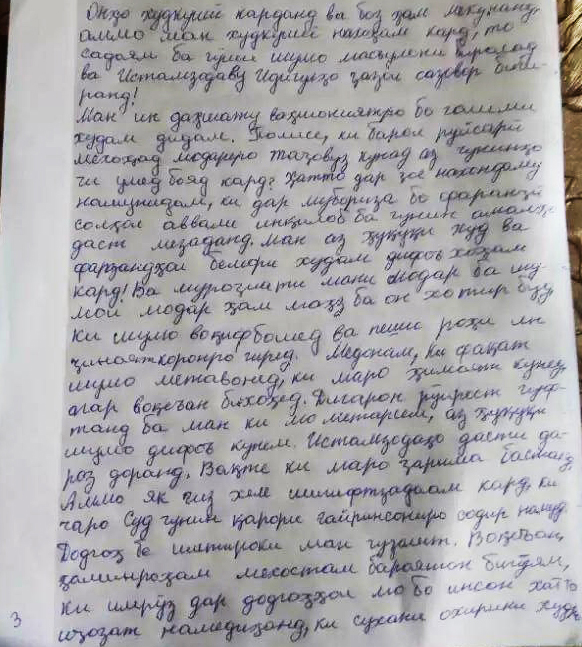 Онҳо худкушӣ карданд ва боз ҳам мекунанд,
аммо ман худкушӣ нахоҳам кард, то
садоям ба гӯши шумо масъулони бирасад
ва Истамзодаву Идигулҳо ҷазои сазовор бини-
ранд!
Ман ин даҳшату ваҳшониятро бо чашми
худам дидам. Полисе, ки барои рӯйсарӣ
мехоҳад модареро таҷовуз кунад аз чунинҳо
чи умед бояд кард? Ҳатто дар ҷое нахондаму
нашунидам, ки дар мубориза бо фаранҷӣ
солҳои аввали инқилоб ба чунин амалҳо
даст мезаданд. Ман аз ҳуқуқи худ ва
фарзандҳои бемори худам дифоъ хоҳам
кард! Ва муроҷиати мани модар ба шу-
мои модар ҳам маҳз ба он хотир буд,
ки шумо воқиф бошед ва пеши роҳи ин
ҷинояткоронро гиред. Медонам, ки фақат
шумо метавонед, ки маро ҳимоят кунед,
агар воқеъан бихоҳед. Дигарон рӯйрост гуф-
танд ба ман ки мо метарсем, аз ҳуқуқи
шумо дифоъ кунем. Истамзодаҳо дасти да-
роз доранд. Вақте ки маро ҷарима бастанд,
Аммо як чиз хеле шигифтзадаам кард, ки
чаро Суд чунин қарори ғайриинсониро содир намуд.
Додгоҳ бе иштироки ман гузашт. Воқеъан,
ҳаминро ҳам мехостам бароятон бигӯям,
ки имрӯз дар додгоҳҳои мо ба инсон ҳатто
иҷозат намедиҳанд, ки сухани охирини худро
3